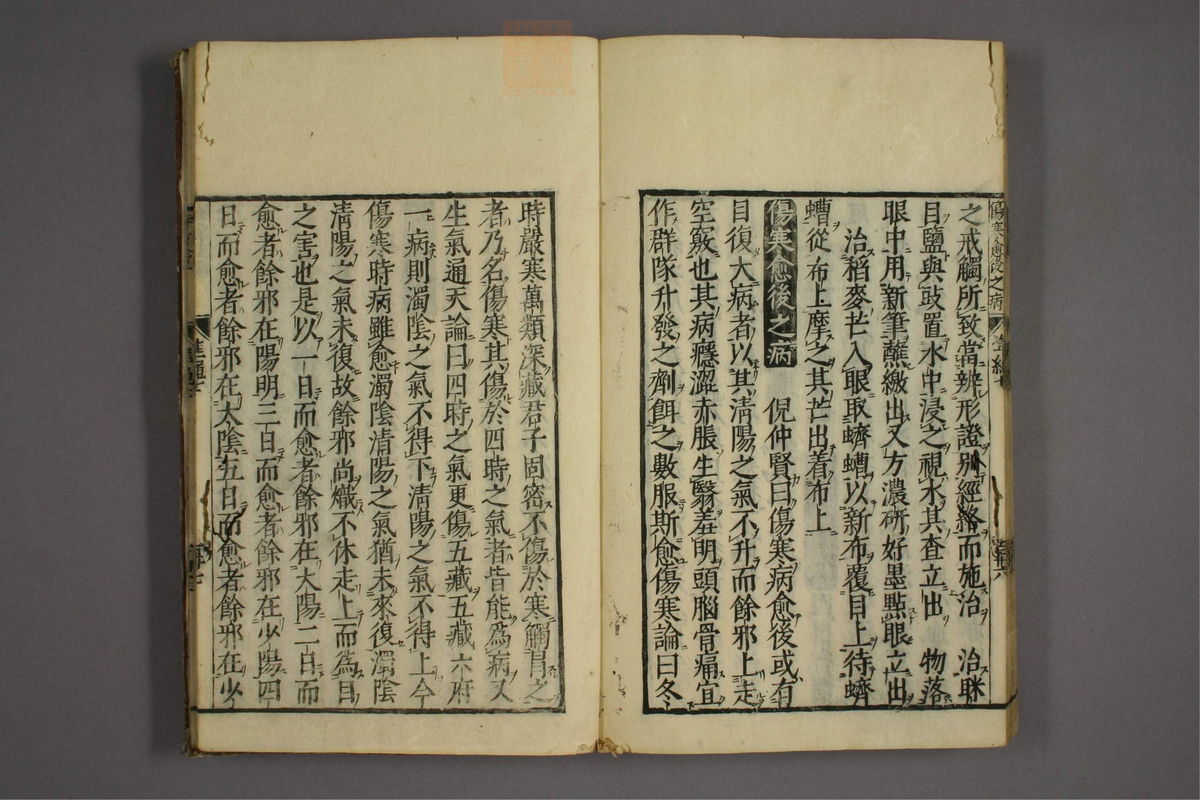 傷寒愈後之病
之戒觸所致當辨形證別經絡而施治　治眯
目鹽與豉置水中浸之視水其查立出　物落
眼中用新筆蘸繳出又方濃研好墨點眼立出
治稻麥芒入眼取蠐螬以新布覆目上待蠐
螬從布上摩之其芒出着布上
傷寒愈後之病　倪仲賢曰傷寒病愈後或有
目復大病者以其清陽之氣不升而餘邪上走
空竅也其病癮澀赤脹生翳羞明頭腦骨痛宜
作群隊升發之劑餌之數服斯愈傷寒論曰冬
時嚴寒萬類深藏君子固密不傷於寒觸冐之
者乃名傷寒其傷於四時之氣者皆能爲病又
生氣通天論曰四時之氣更傷五藏五藏六府
一病則濁陰之氣不得下清陽之氣不得上今
傷寒時病雖愈濁陰清陽之氣猶未來復濁陰
清陽之氣未復故餘邪尚熾不休走上而為目
之害也是以一日而愈者餘邪在太陽二日而
愈者餘邪在陽明三日而愈者餘邪在少陽四
日而愈者餘邪在太陰五日而愈者餘邪在少